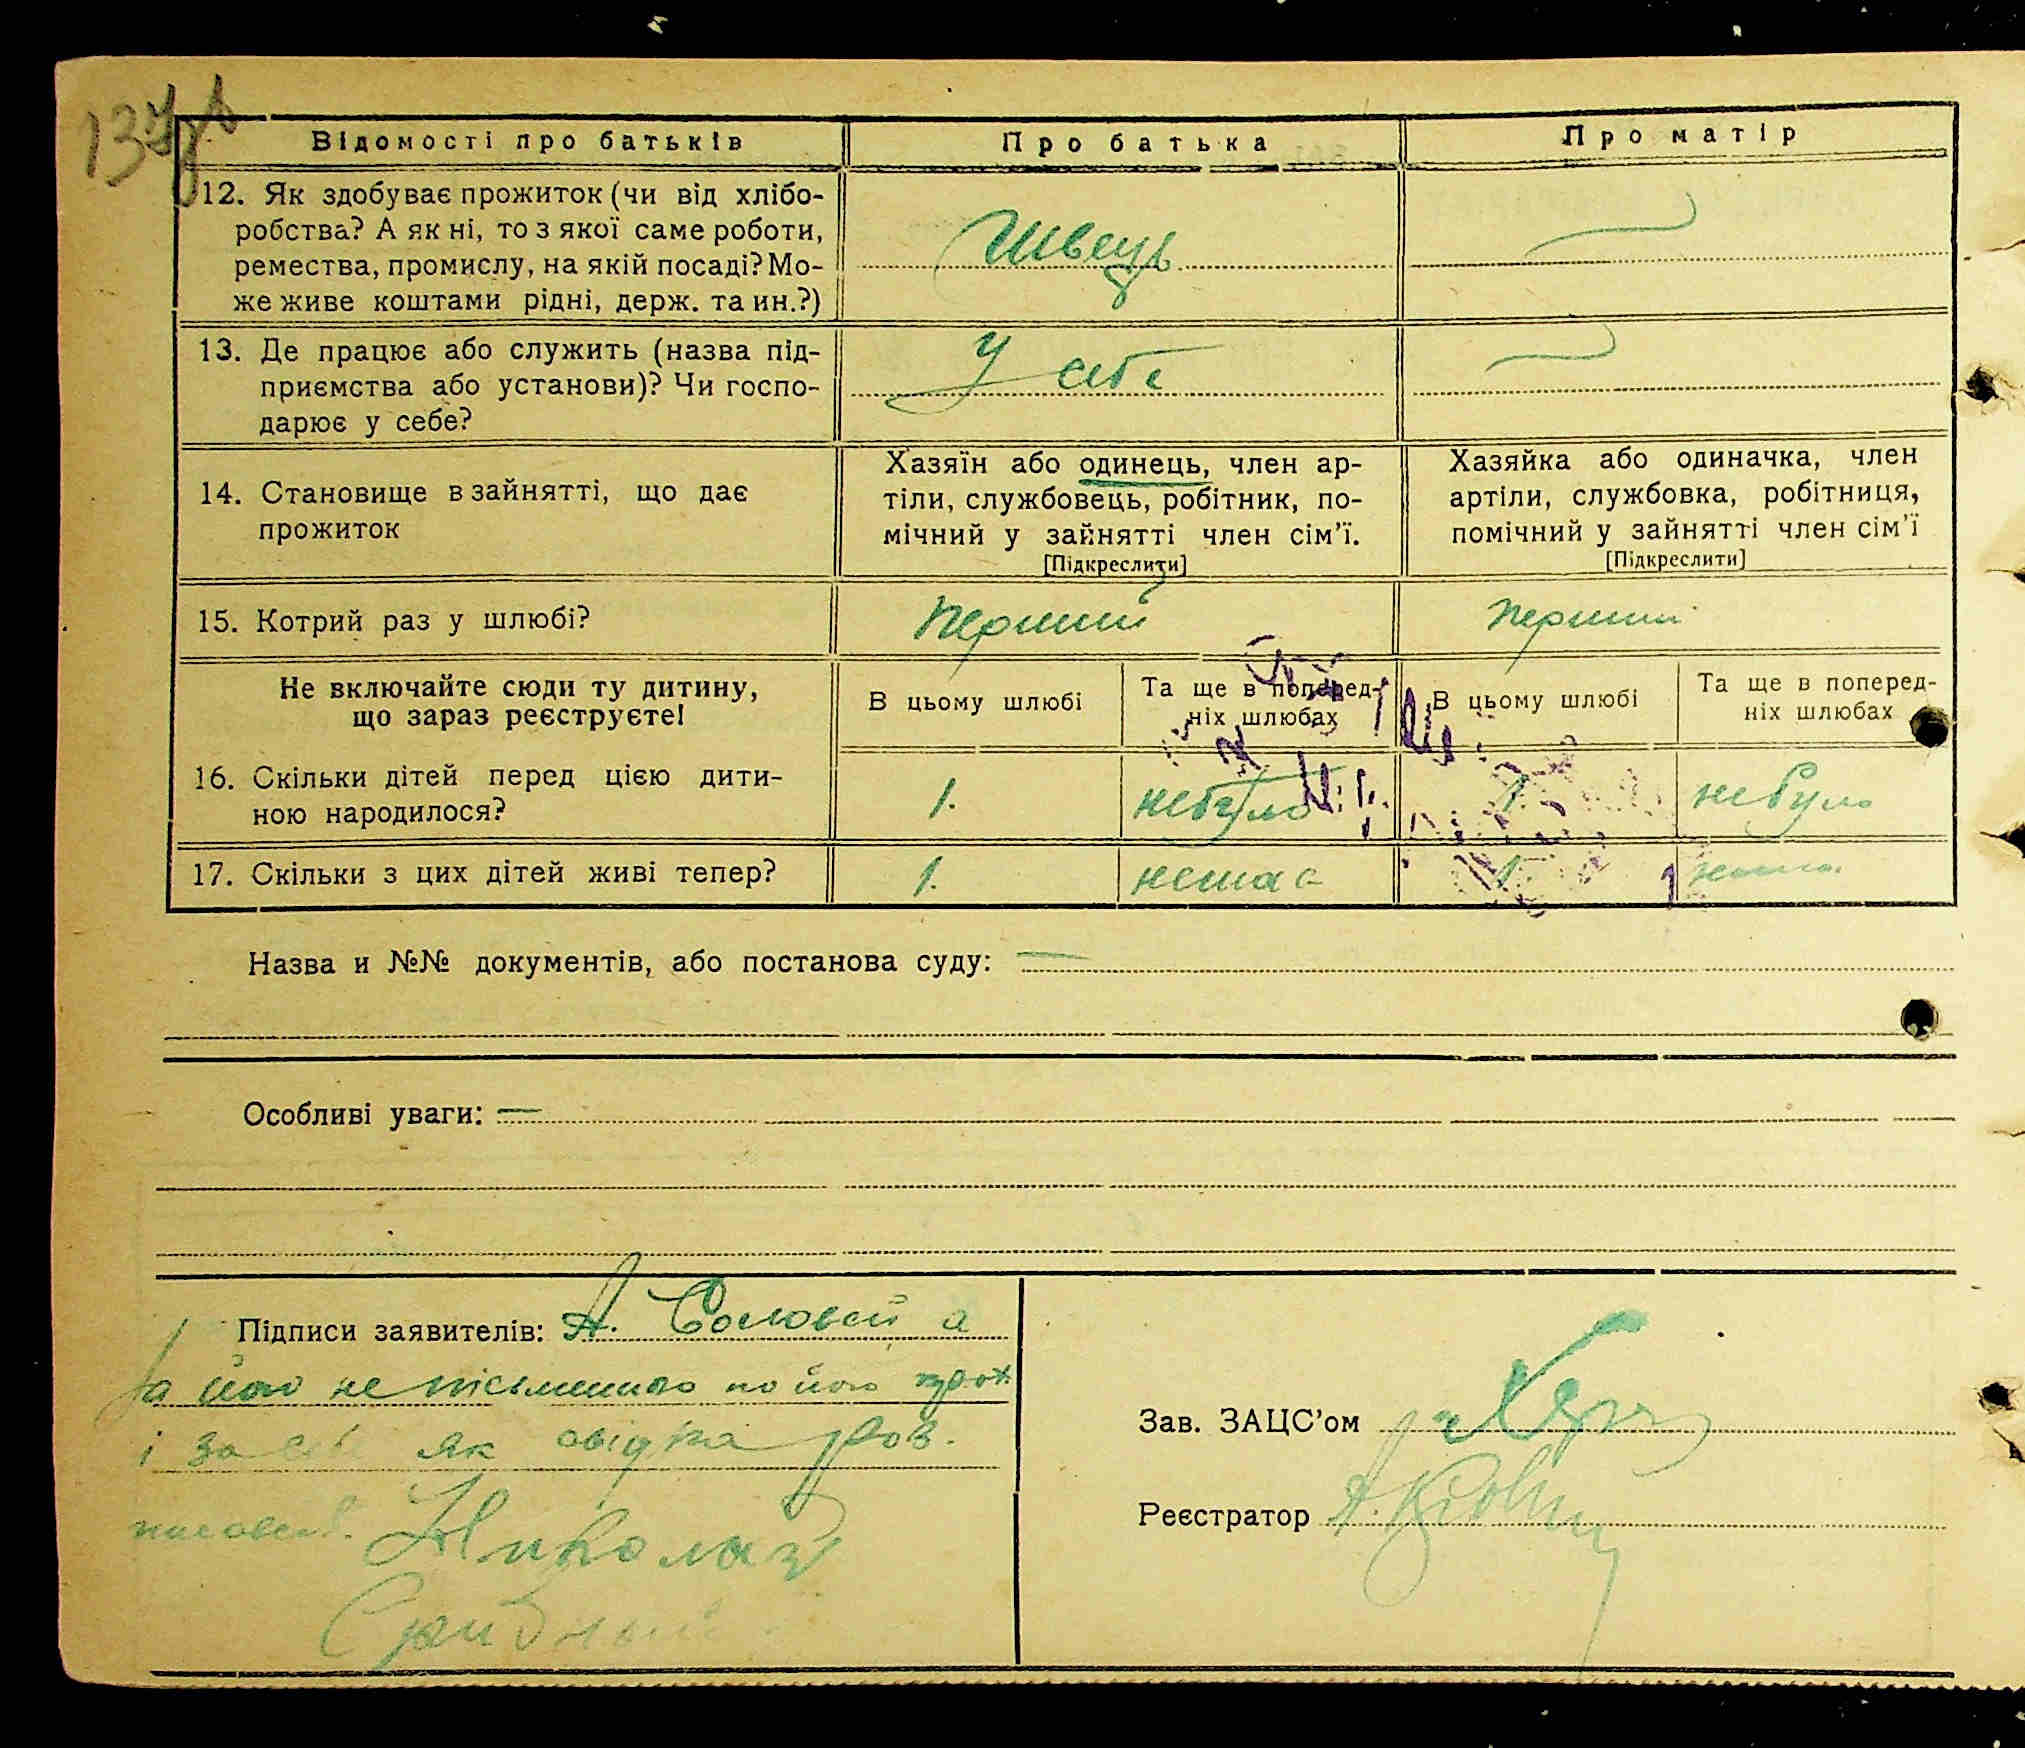 Відомості про батьків
Про батька
Про матір
12. Як здобуває прожиток (чи від хлібо-
робства? А як ні, то з якої саме роботи,
ремества, промислу, на якій посаді? Мо-
же живе коштами рідні, держ. та ин.?)
Швець
13. Де працює або служить (назва під-
приємства або установи)? Чи госпо-
дарює у себе?
У себе
14. Становище в зайнятті, що дає
прожиток
Хазяїн або одинець, член ар-
тіли, службовець, робітник, по-
мічний у зайнятті член сім'ї.
[Підкреслити]
Хазяйка або одиначка, член
артіли, службовка, робітниця,
помічний у зайнятті член сім'ї
[Підкреслити]
15. Котрий раз у шлюбі?
Перший
Перший
Не включайте сюди ту дитину,
що зараз реєструєте!
В цьому шлюбі
Та ще в поперед-
ніх шлюбах
В цьому шлюбі
Та ще в поперед-
ніх шлюбах
16. Скільки дітей перед цією дити-
ною народилося?
1.
небуло
1.
небуло
17. Скільки з цих дітей живі тепер?
1.
немає
1.
нема
Назва и №№ документів, або постанова суду: —
Особливі уваги: —
Підписи заявителів: А. Соловей а
за його неписьменного по його прох.
і за себе як свідка
Николай
Зав. ЗАЦС'ом
Реєстратор